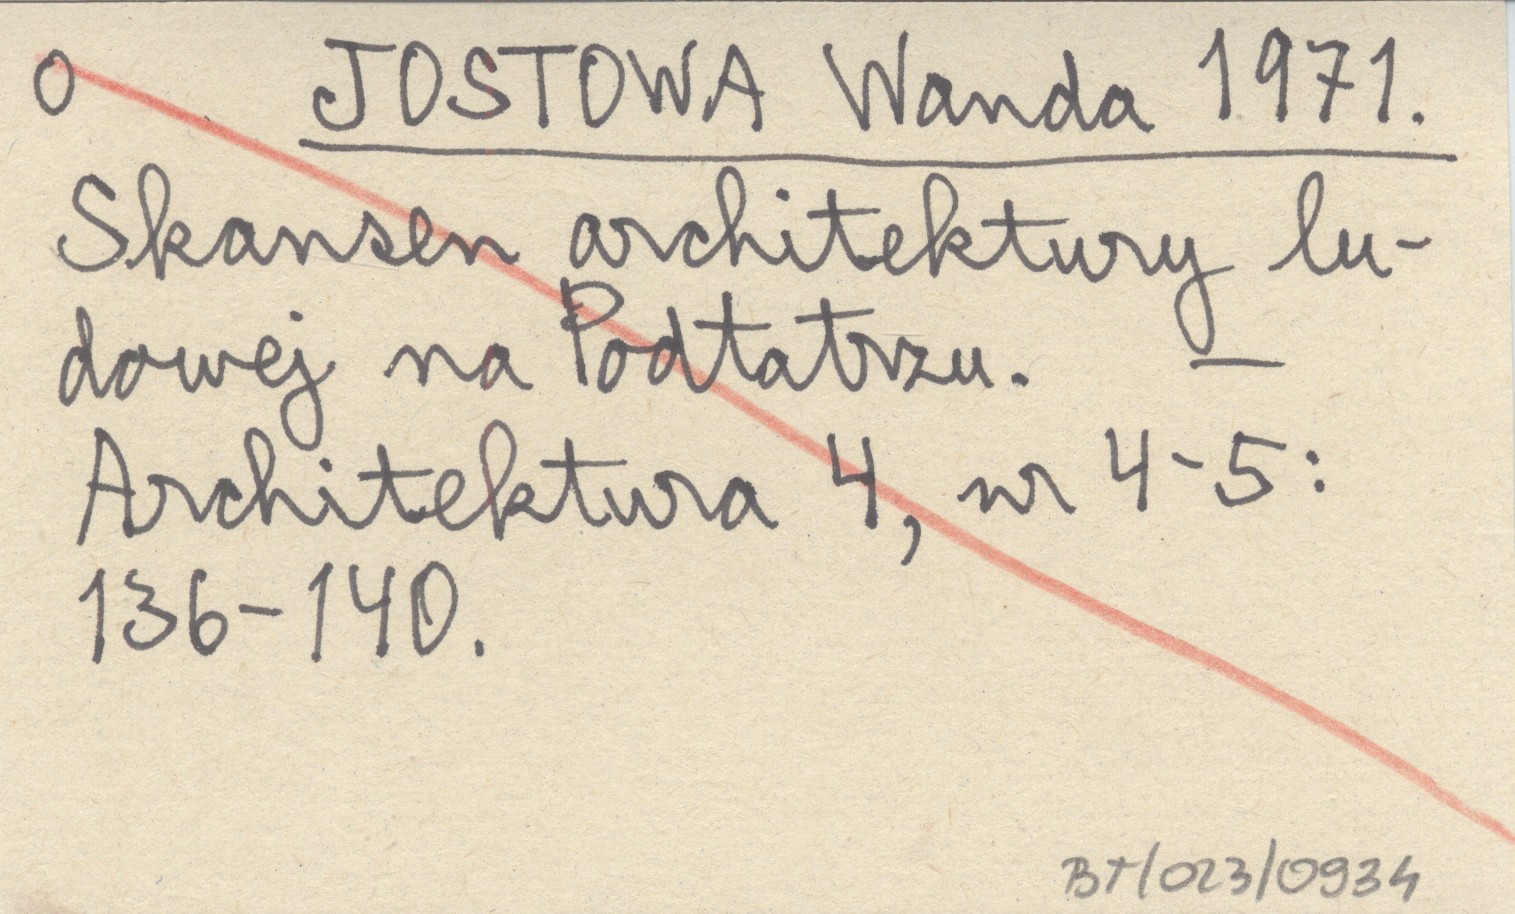 O JOSTOWA Wanda 1971.
Skansen architektury lu-
dowej na Podtatrzu. —
Architektura 4, nr 4-5:
136-140.
BT/023/0934